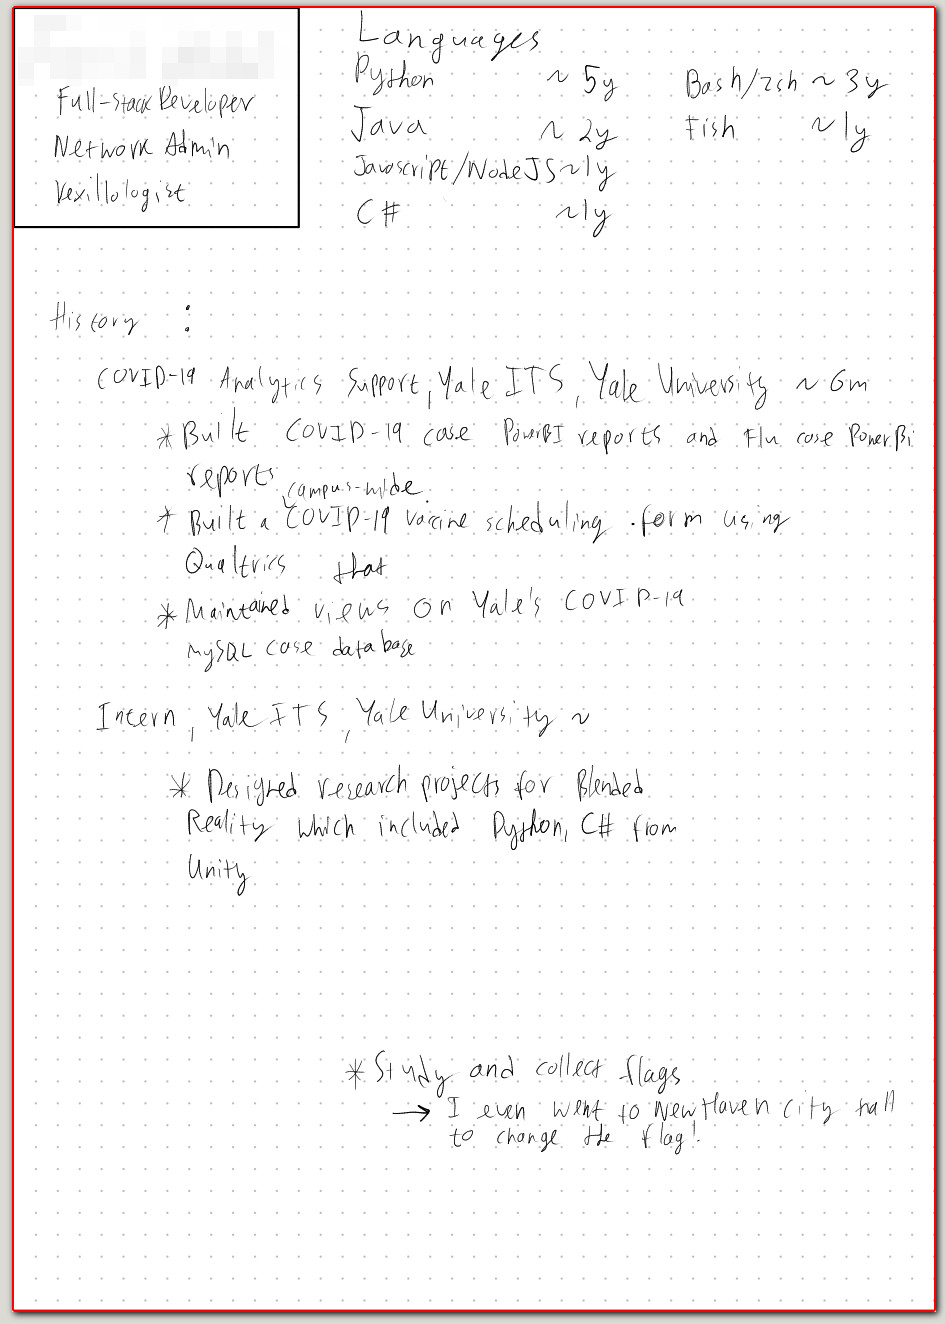 Full-Stack Developer
Network Admin
Vexillologist
Languages
Python ~ 5y
Java ~ 2y
Javascript/NodeJS ~1y
C# ~1y
Bash/zsh ~ 3y
Fish ~1y
History :
COVID-19 Analytics Support, Yale ITS, Yale University ~ 6m
* Built COVID-19 case PowerBI reports and Flu case PowerBi
reports
campus-wide
* Built a COVID-19 vaccine scheduling form using
Qualtrics that
* Maintained views on Yale's COVID-19
MySQL case database
Intern, Yale ITS, Yale University ~
* Designed research projects for Blended
Reality which included Python, C# from
Unity
* Study and collect flags
→ I even went to New Haven city hall
to change the flag!